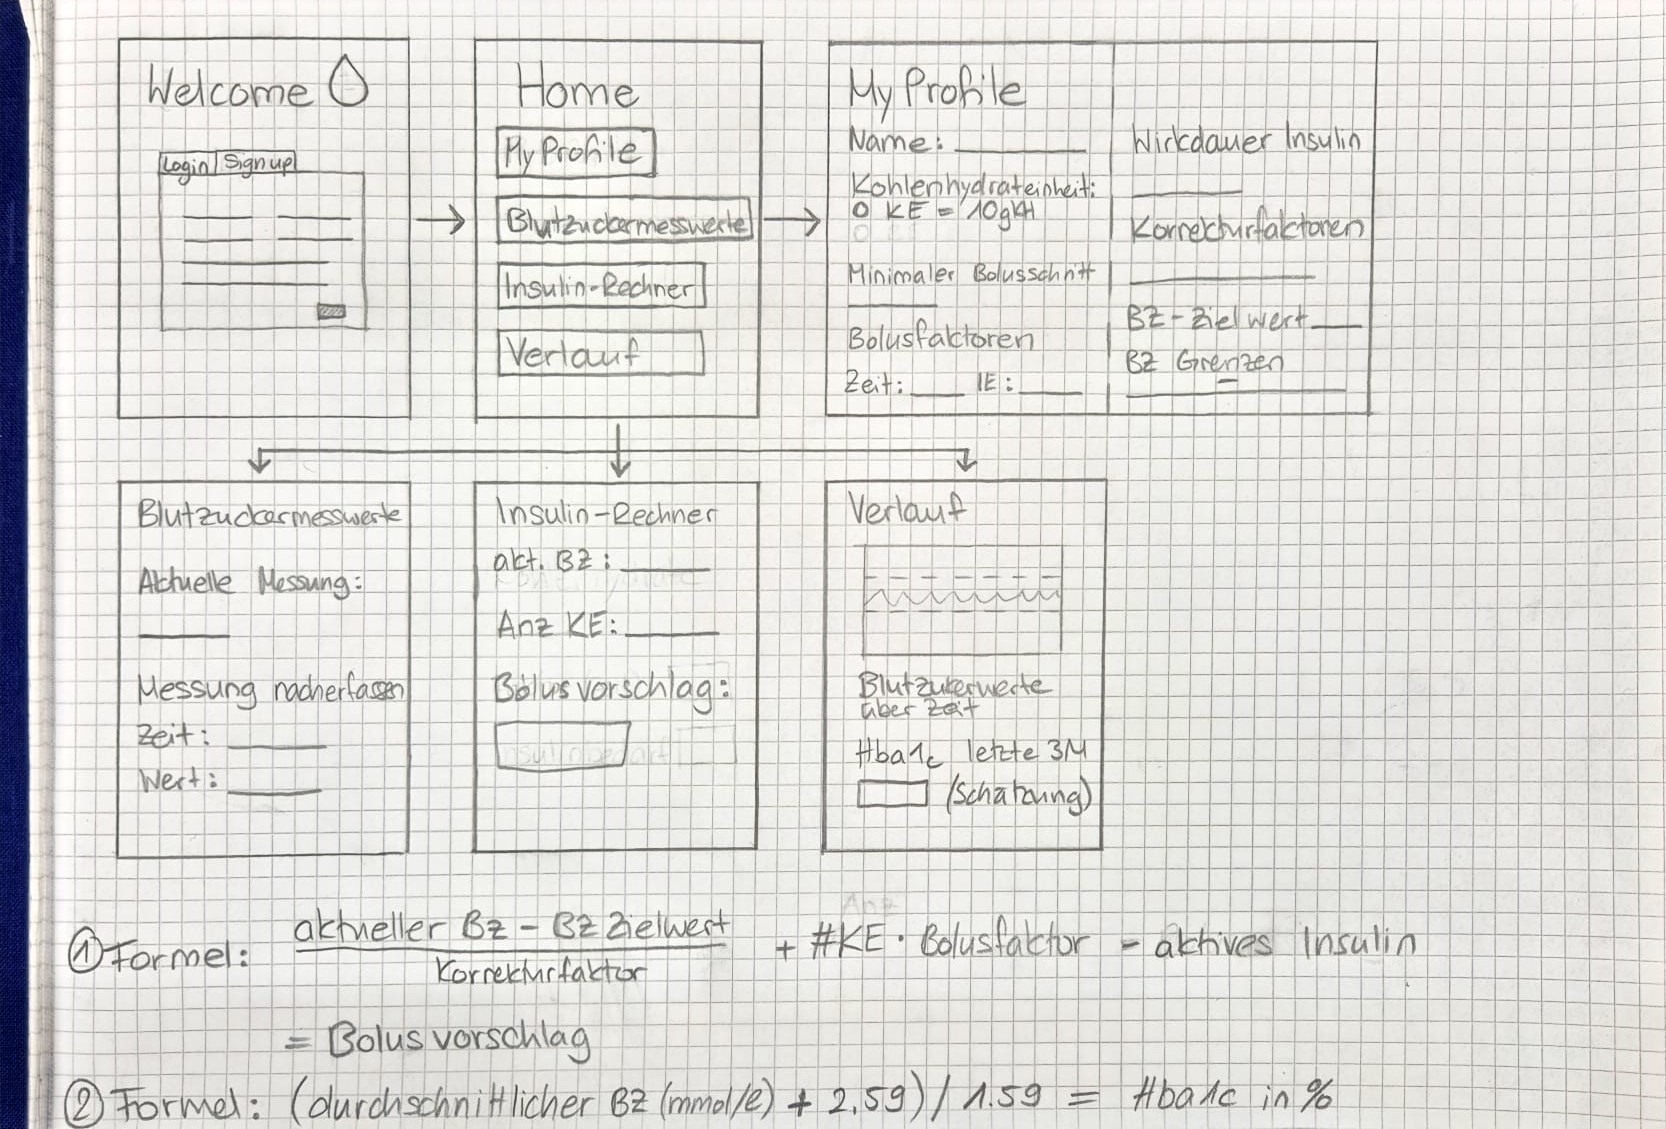 Welcome
Login Sign up
Home
My Profile
Blutzuckermesswerte
Insulin-Rechner
Verlauf
My Profile
Name:
Kohlenhydrateinheit:
O KE = 10gKH
Minimaler Bolusschritt
Bolusfaktoren
Zeit: IE:
Wirkdauer Insulin
Korrekturfaktoren
BZ-Zielwert
BZ Grenzen
–
Blutzuckermesswerte
Aktuelle Messung:
Messung nacherfassen
Zeit:
Wert:
Insulin-Rechner
akt. BZ:
Anz KE:
Bolusvorschlag:
Verlauf
Blutzukerwerte
über Zeit
Hba1c letzte 3M
(Schätzung)
① Formel: aktueller BZ - BZ Zielwert
Korrekturfaktor
+ #KE · Bolusfaktor - aktives Insulin
= Bolusvorschlag
② Formel: (durchschnittlicher BZ (mmol/l) + 2.59) / 1.59 = Hba1c in %